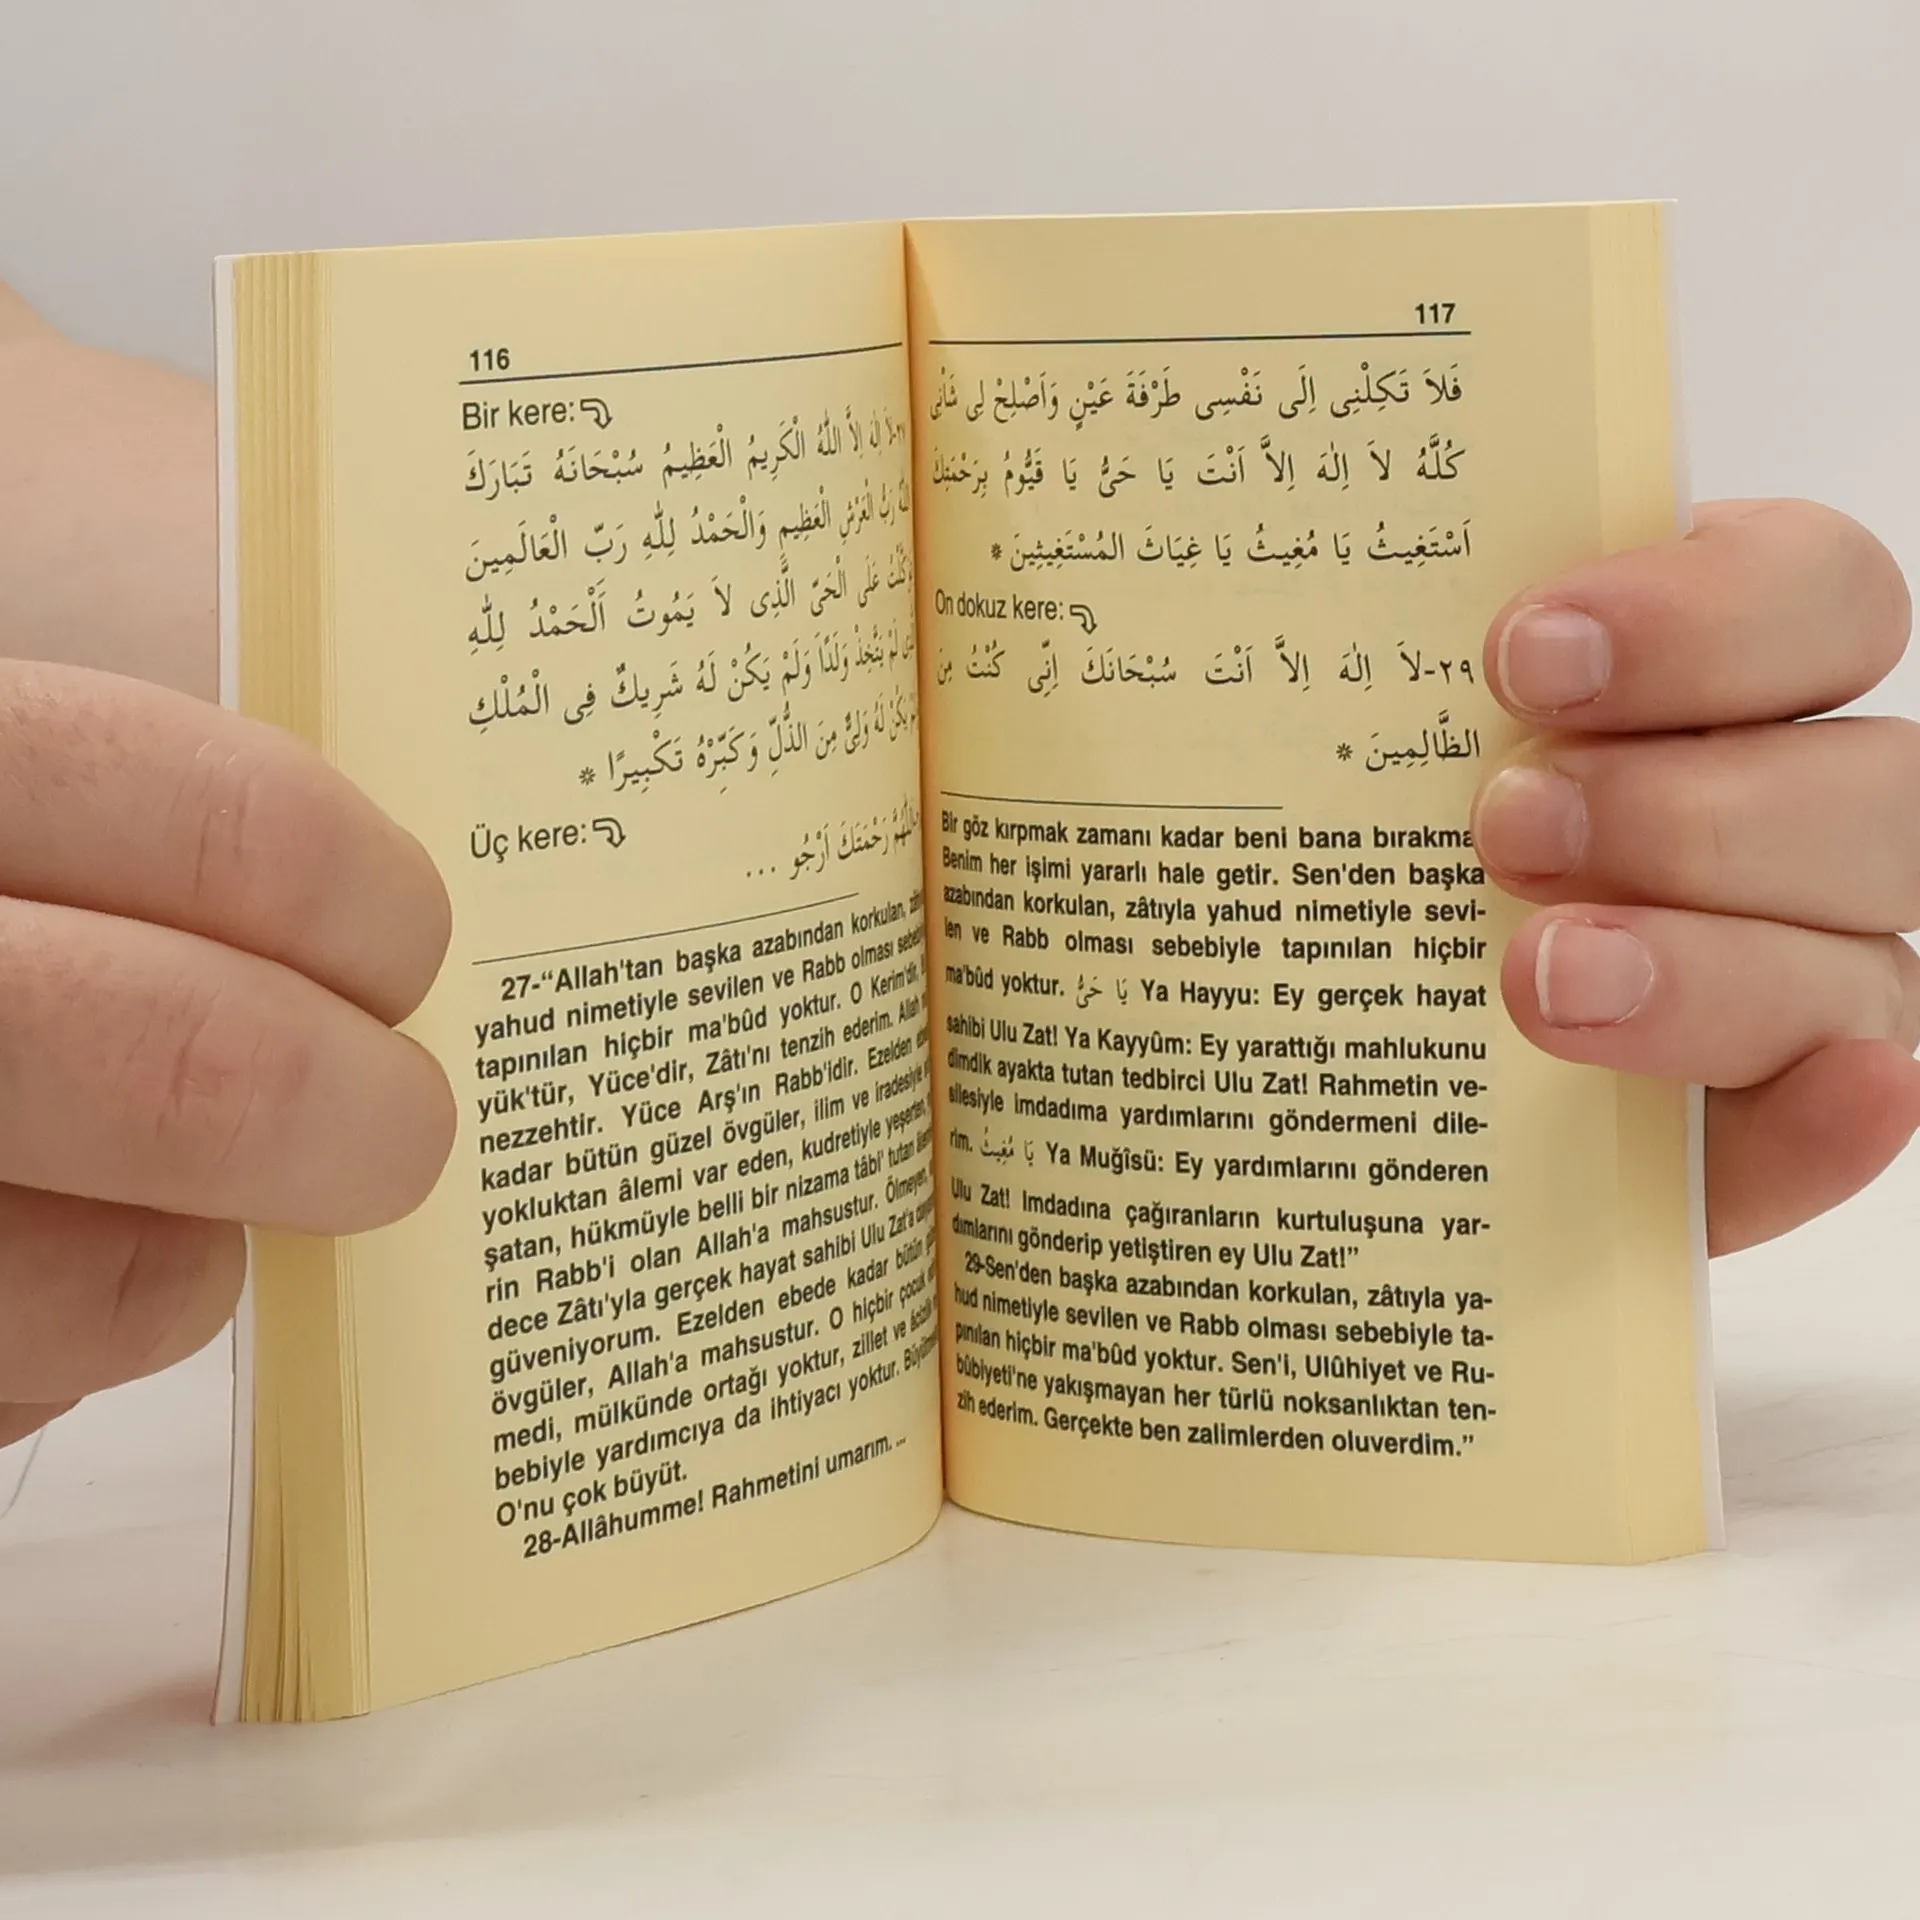 116
Bir kere:
لاَ اِلٰهَ اِلاَّ اللّٰهُ الْكَرِيمُ الْعَظِيمُ سُبْحَانَهُ تَبَارَكَ
اللّٰهُ رَبُّ الْعَرْشِ الْعَظِيمِ وَالْحَمْدُ لِلّٰهِ رَبِّ الْعَالَمِينَ
عَلَى الْحَىِّ الَّذِى لاَ يَمُوتُ اَلْحَمْدُ لِلّٰهِ
لَمْ يَتَّخِذْ وَلَدًا وَلَمْ يَكُنْ لَهُ شَرِيكٌ فِى الْمُلْكِ
يَكُنْ لَهُ وَلِىٌّ مِنَ الذُّلِّ وَكَبِّرْهُ تَكْبِيرًا *
Üç kere:
اَللّٰهُمَّ رَحْمَتَكَ اَرْجُو ...
27-“Allah'tan başka azabından korkulan,
yahud nimetiyle sevilen ve Rabb olması
tapınılan hiçbir ma'bûd yoktur. O Kerim'dir,
yük'tür, Yüce'dir, Zâtı'nı tenzih ederim. Allah
nezzehtir. Yüce Arş'ın Rabb'idir. Ezelden
kadar bütün güzel övgüler, ilim ve iradesiyle
yokluktan âlemi var eden, kudretiyle yeşerten,
şatan, hükmüyle belli bir nizama tâbi' tutan
rin Rabb'i olan Allah'a mahsustur. Ölmeyen,
dece Zâtı'yla gerçek hayat sahibi Ulu Zat'a
güveniyorum. Ezelden ebede kadar bütün
övgüler, Allah'a mahsustur. O hiçbir çocuk
medi, mülkünde ortağı yoktur, zillet ve
bebiyle yardımcıya da ihtiyacı yoktur.
O'nu çok büyüt.
28-Allâhumme! Rahmetini umarım. ...
117
فَلاَ تَكِلْنِى اِلَى نَفْسِى طَرْفَةَ عَيْنٍ وَاَصْلِحْ لِى شَاْنِى
كُلَّهُ لاَ اِلٰهَ اِلاَّ اَنْتَ يَا حَىُّ يَا قَيُّومُ بِرَحْمَتِكَ
اَسْتَغِيثُ يَا مُغِيثُ يَا غِيَاثَ الْمُسْتَغِيثِينَ *
On dokuz kere:
٢٩-لاَ اِلٰهَ اِلاَّ اَنْتَ سُبْحَانَكَ اِنِّى كُنْتُ مِنَ
الظَّالِمِينَ *
Bir göz kırpmak zamanı kadar beni bana bırakma
Benim her işimi yararlı hale getir. Sen'den başka
azabından korkulan, zâtıyla yahud nimetiyle sevi-
len ve Rabb olması sebebiyle tapınılan hiçbir
ma'bûd yoktur. يَا حَىُّ Ya Hayyu: Ey gerçek hayat
sahibi Ulu Zat! Ya Kayyûm: Ey yarattığı mahlukunu
dimdik ayakta tutan tedbirci Ulu Zat! Rahmetin ve-
silesiyle imdadıma yardımlarını göndermeni dile-
rim. يَا مُغِيثُ Ya Muğîsü: Ey yardımlarını gönderen
Ulu Zat! Imdadına çağıranların kurtuluşuna yar-
dımlarını gönderip yetiştiren ey Ulu Zat!”
29-Sen'den başka azabından korkulan, zâtıyla ya-
hud nimetiyle sevilen ve Rabb olması sebebiyle ta-
pınılan hiçbir ma'bûd yoktur. Sen'i, Ulûhiyet ve Ru-
bûbiyeti'ne yakışmayan her türlü noksanlıktan ten-
zih ederim. Gerçekte ben zalimlerden oluverdim.”